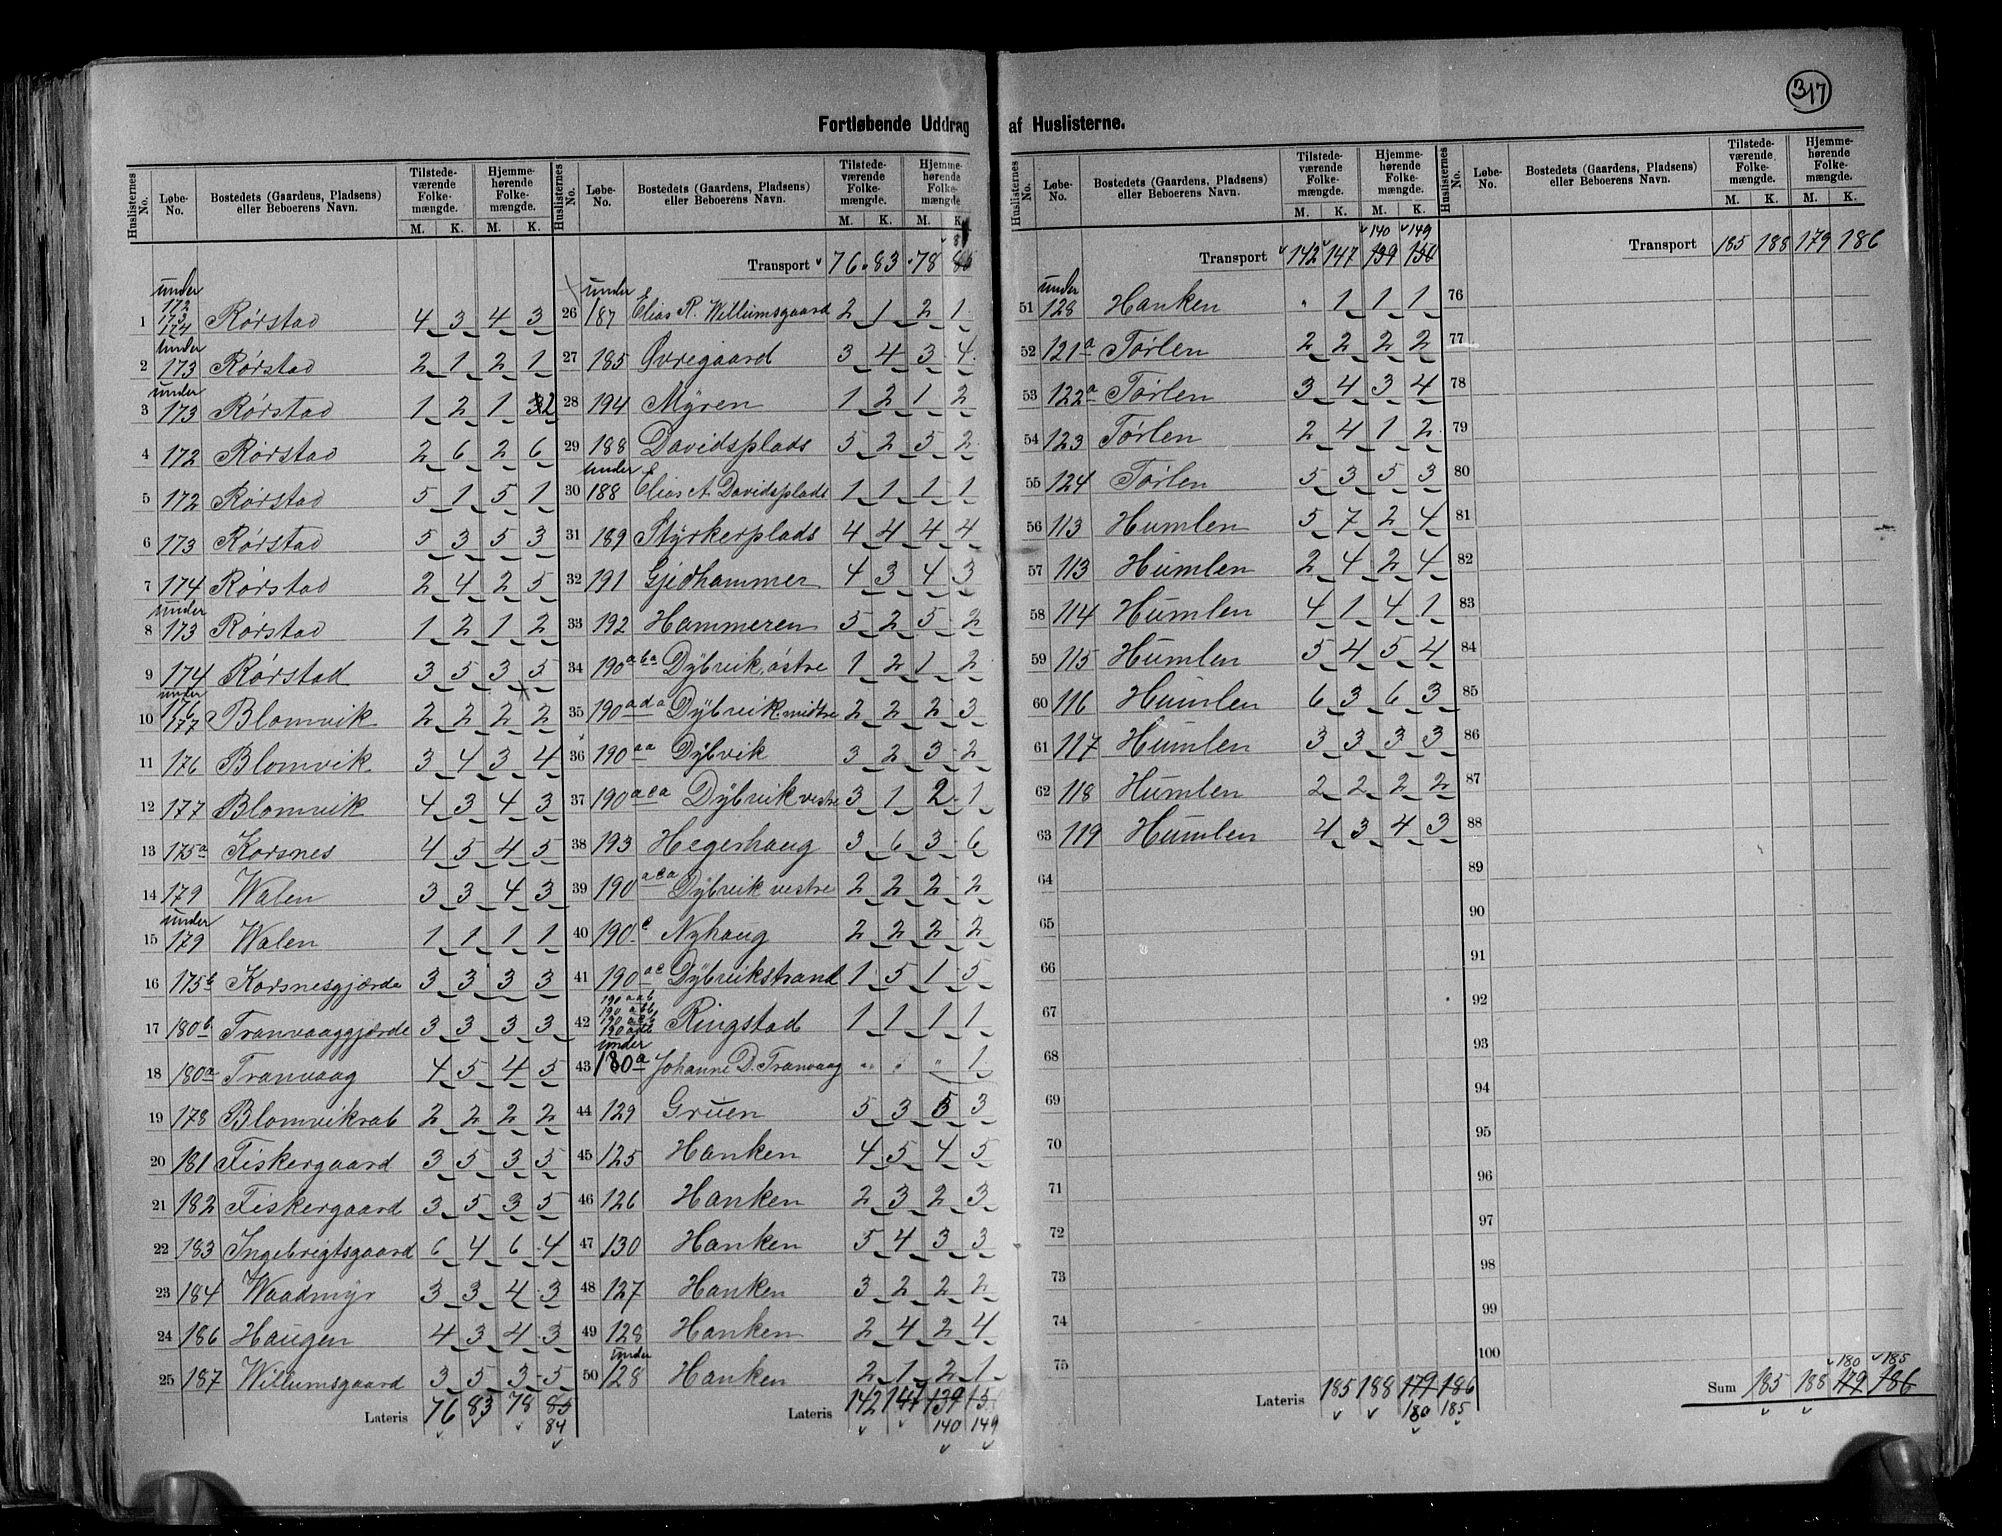 317
Fortløbende Uddrag af Huslisterne.
Huslisternes No. Løbe-No. Bostedets (Gaardens, Pladsens) eller Beboerens Navn. Tilstedeværende Folkemængde. M. K. Hjemmehørende Folkemængde. M. K.
1 under 172 173 174 Rørstad 4 3 4 3
2 under 173 Rørstad 2 1 2 1
3 under 173 Rørstad 1 2 1 2
4 172 Rørstad 2 6 2 6
5 172 Rørstad 5 1 5 1
6 173 Rørstad 5 3 5 3
7 174 Rørstad 2 4 2 5
8 under 173 Rørstad 1 2 1 2
9 174 Rørstad 3 5 3 5
10 under 176 177 Blomvik 2 2 2 2
11 176 Blomvik 3 4 3 4
12 177 Blomvik 4 3 4 3
13 175a Korsnes 4 5 4 5
14 179 Walen 3 3 4 3
15 under 179 Walen 1 1 1 1
16 175b Korsnesgjærde 3 3 3 3
17 180b Tranvaaggjærde 3 3 3 3
18 180a Tranvaag 4 5 4 5
19 178 Blomvikrab 2 2 2 2
20 181 Fiskergaard 3 5 3 5
21 182 Fiskergaard 3 5 3 5
22 183 Ingebrigtsgaard 6 4 6 4
23 184 Waadmyr 3 3 4 3
24 186 Haugen 4 3 4 3
25 187 Willumsgaard 3 5 3 5
Lateris 76 83 78 85 84
Huslisternes No. Løbe-No. Bostedets (Gaardens, Pladsens) eller Beboerens Navn. Tilstedeværende Folkemængde. M. K. Hjemmehørende Folkemængde M. K.
Transport 76 83 78
26 under 187 Elias R. Willumsgaard 2 1 2 1
27 185 Øvregaard 3 4 3 4
28 194 Myren 1 2 1 2
29 188 Davidsplads 5 2 5 2
30 under 188 Elias A. Davidsplads 1 1 1 1
31 189 Styrkerplads 4 4 4 4
32 191 Gjedhammer 4 3 4 3
33 192 Hammeren 5 2 5 2
34 190 aba Dybvik, østre 1 2 1 2
35 190 ada Dybvik midtre 2 2 2 3
36 190 aa Dybvik 3 2 3 2
37 190 aca Dybvik vestre 3 1 2 1
38 193 Hegerhaug 3 6 3 6
39 190 aca Dybvik vestre 2 2 2 2
40 190 c Nyhaug 2 2 2 2
41 190 ae Dybvikstrand 1 5 1 5
42 190 aab 190 abb 190 acb 190 adb Ringstad 1 1 1 1
43 under 180a Johanne D. Tranvaag " " " 1
44 129 Gruen 5 3 5 3
45 125 Hanken 4 5 4 5
46 126 Hanken 2 3 2 3
47 130 Hanken 5 4 3 3
48 127 Hanken 3 2 2 2
49 128 Hanken 2 4 2 4
50 under 128 Hanken 2 1 2 1
Lateris 142 147 139 140 149
Huslisternes No. Løbe-No. Bostedets (Gaardens, Pladsens) eller Beboerens Navn. Tilstedeværende Folkemængde. M. K. Hjemmehørende Folkemængde. M. K.
140 149
Transport 142 147 139 150
51 under 128 Hanken " 1 1 1
52 121a Tørlen 2 2 2 2
53 122a Tørlen 3 4 3 4
54 123 Tørlen 2 4 1 2
55 124 Tørlen 5 3 5 3
56 113 Humlen 5 7 2 4
57 113 Humlen 2 4 2 4
58 114 Humlen 4 1 4 1
59 115 Humlen 5 4 5 4
60 116 Humlen 6 3 6 3
61 117 Humlen 3 3 3 3
62 118 Humlen 2 2 2 2
63 119 Humlen 4 3 4 3
64
65
66
67
68
69
70
71
72
73
74
75
Lateris 185 188 179 186
180 185
Huslisternes No. Løbe-No. Bostedets (Gaardens, Pladsens) eller Beboerens Navn. Tilstedeværende Folkemængde. M. K. Hjemmehørende Folkemængde. M. K.
Transport 185 188 179 186
76
77
78
79
80
81
82
83
84
85
86
87
88
89
90
91
92
93
94
95
96
97
98
99
100
180 185
Sum 185 188 179 186